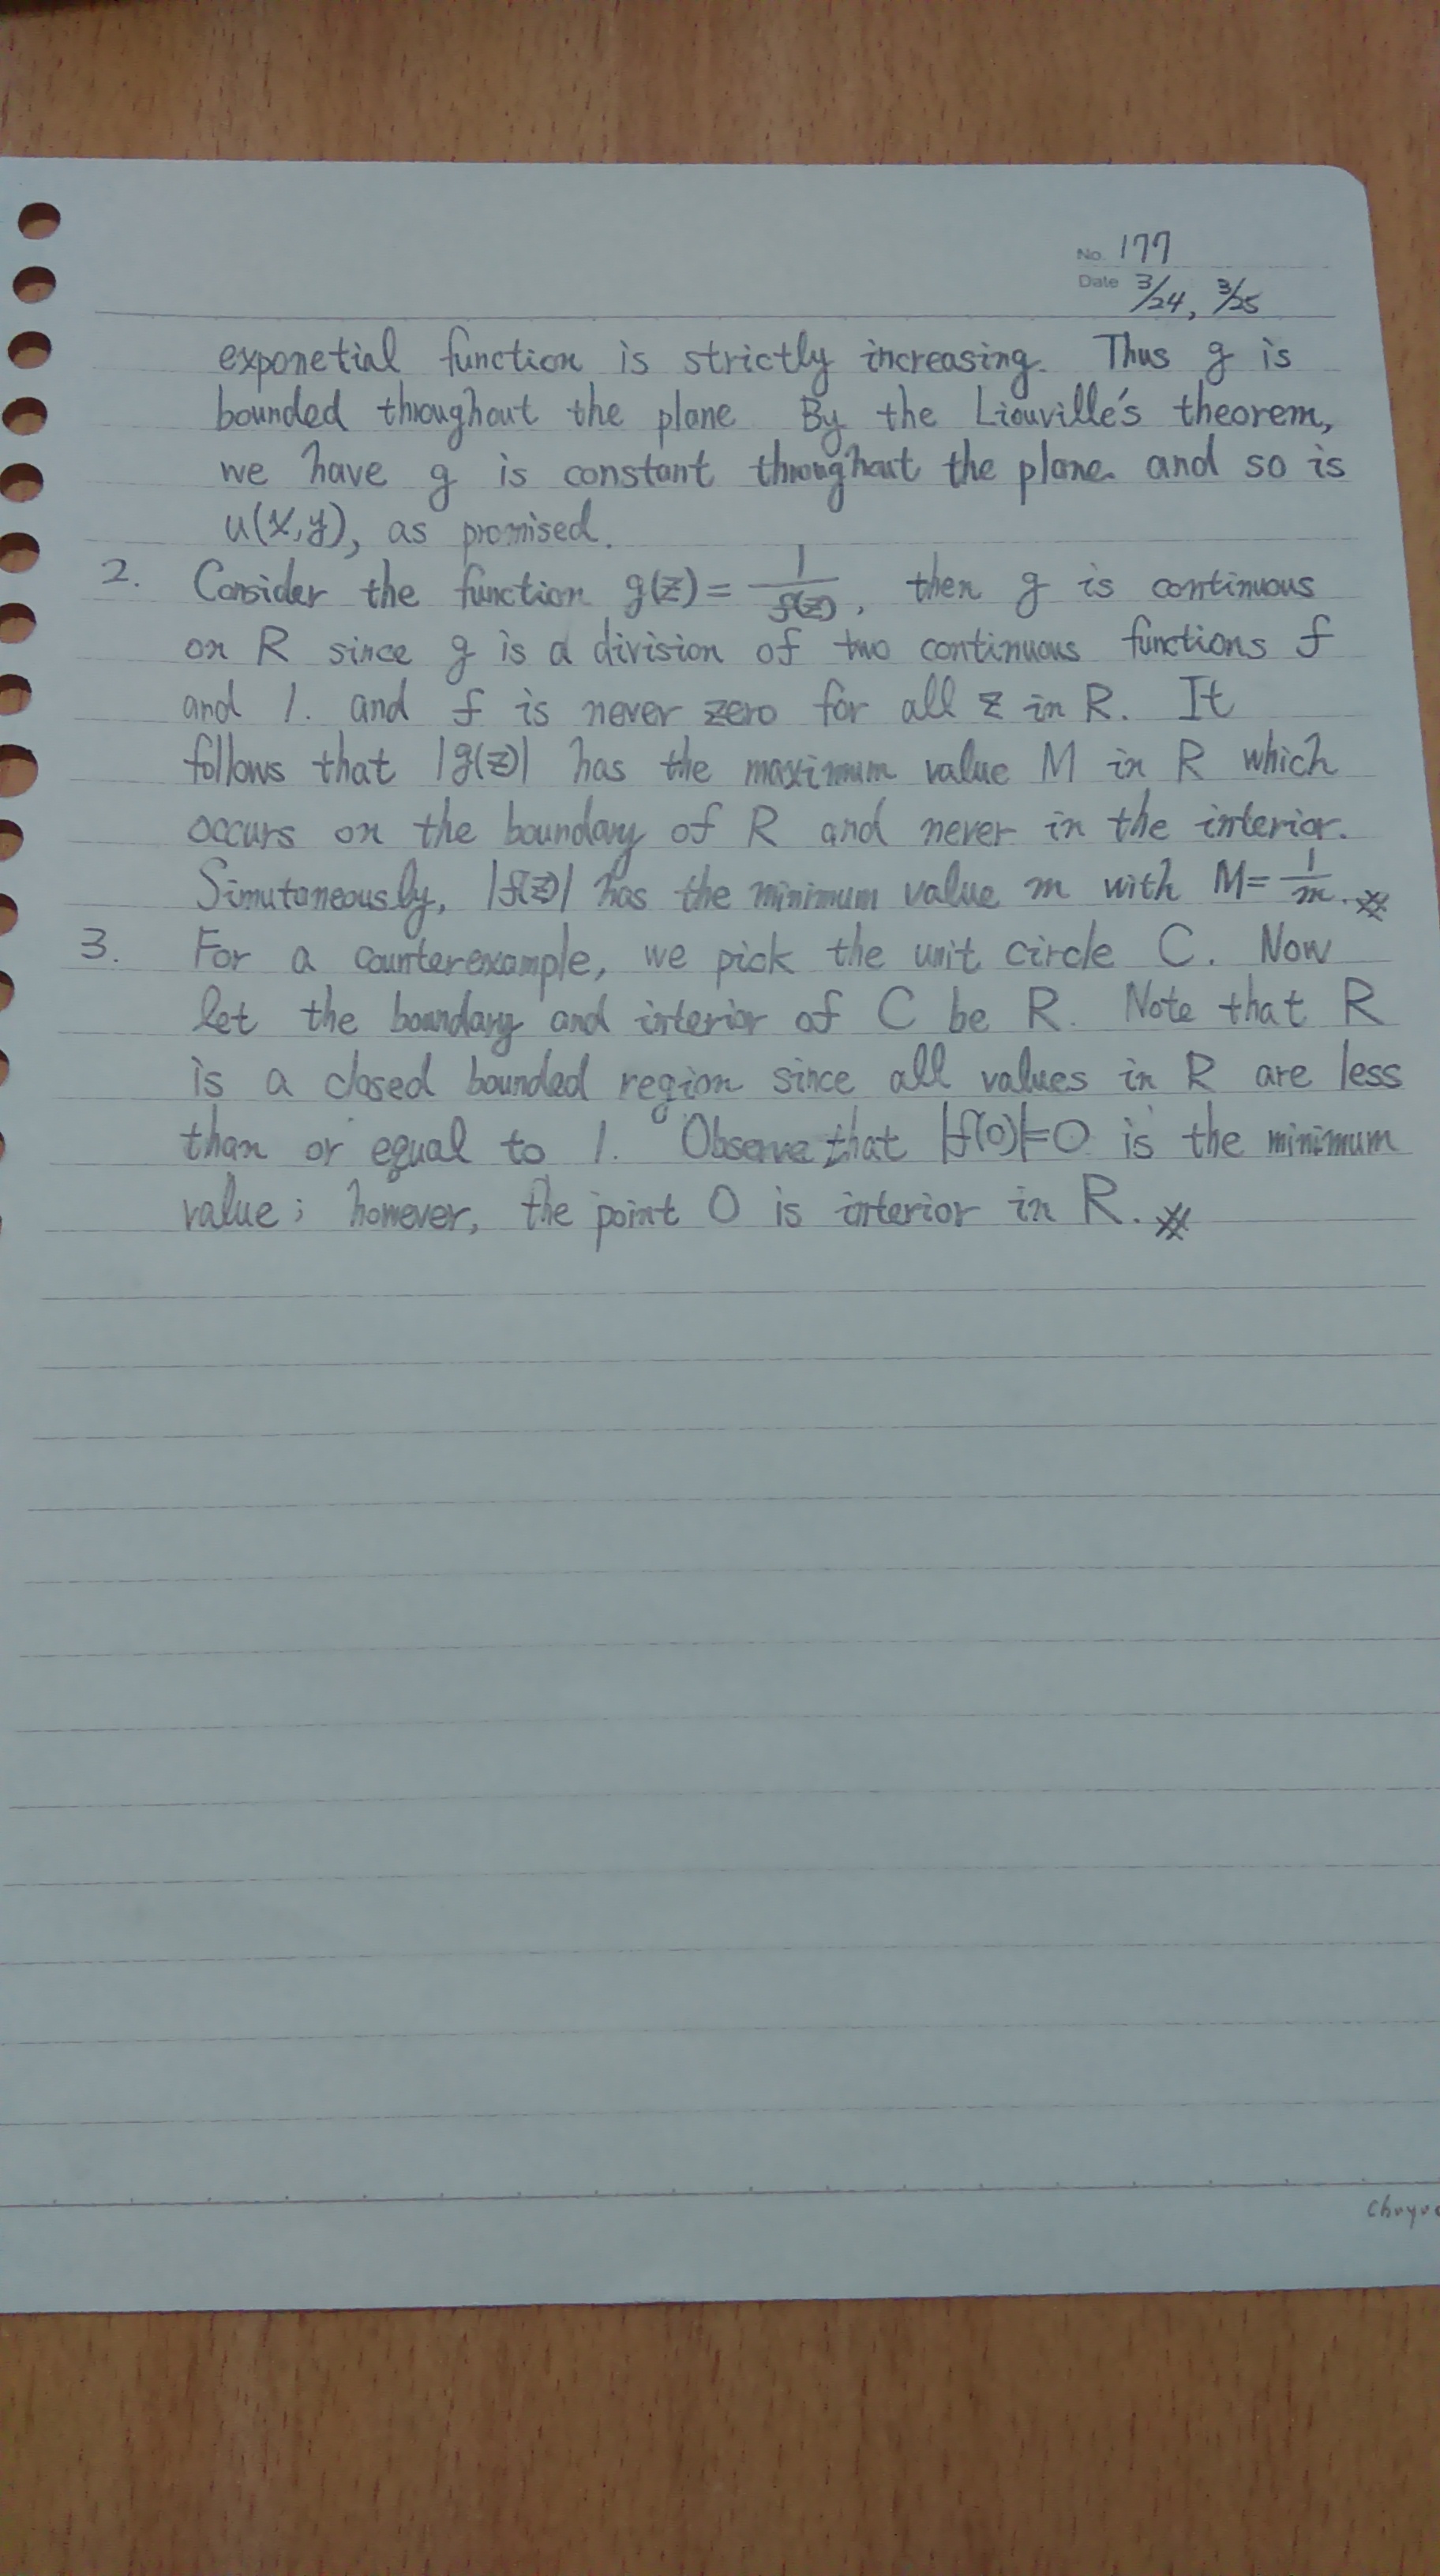 No. 177
Date 3/24, 3/25
exponetial function is strictly increasing. Thus g is
bounded throughout the plane By the Liouville's theorem,
we have g is constant throughout the plane and so is
u(x,y), as promised.
2. Consider the function g(z) = 1/f(z), then g is continuous
on R since g is a division of two continuous functions f
and 1. and f is never zero for all z in R. It
follows that |g(z)| has the maximum value M in R which
occurs on the boundary of R and never in the interior.
Simutaneously, |f(z)| has the minimum value m with M = 1/m.
3. For a counterexample, we pick the unit circle C. Now
let the boundary and interior of C be R. Note that R
is a closed bounded region since all values in R are less
than or equal to 1. Observe that |f(0)|=0 is the minimum
value; however, the point 0 is interior in R.